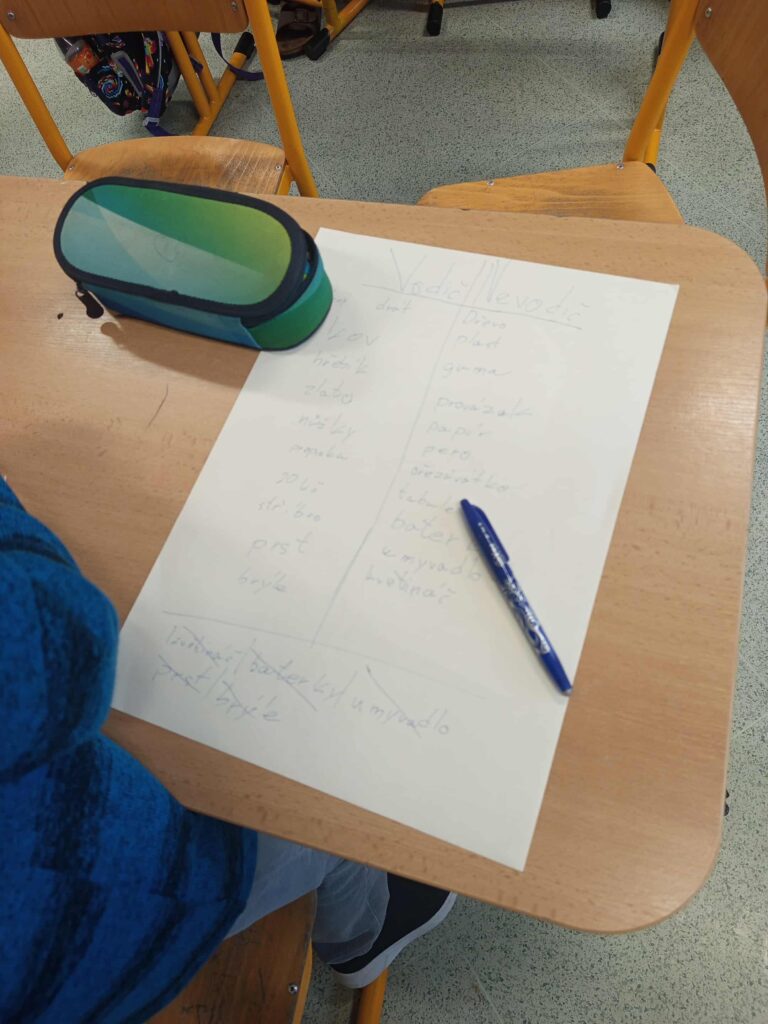 Vodič/Nevodič
drát
kov
hřebík
zlato
nůžky
propiska
20 kč
stříbro
prst
brýle
Dřevo
plast
guma
provázek
papír
pero
ořezávátko
tabule
bater
umyvadlo
květináč
květináč/baterky/umyvadlo
prst/brýle